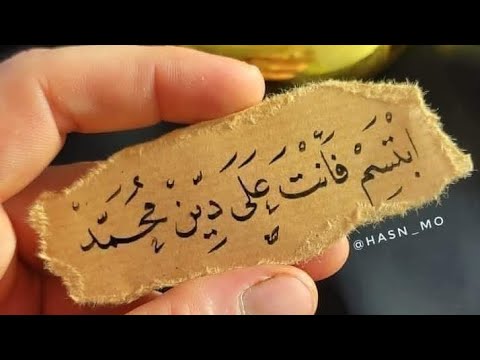 ابْتَسِمْ فَأَنْتَ عَلَى دِيْنِ مُحَمَّد
@HASN_MO